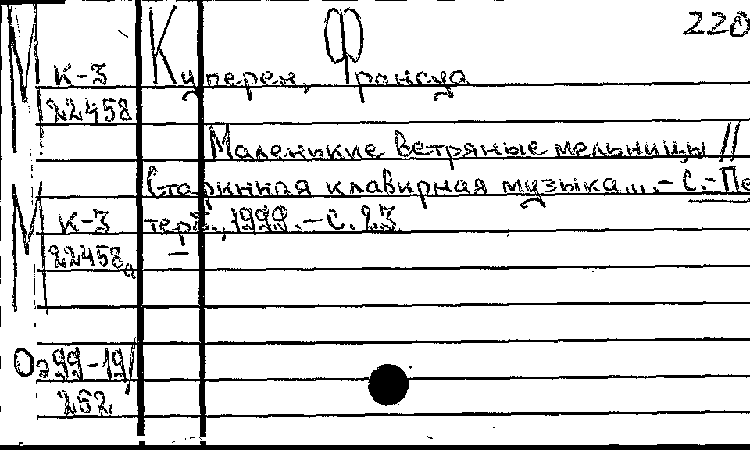 220
М К-3 Куперен, Франсуа
22458
Маленькие ветряные мельницы //
Старинная клавирная музыка... - С.-Пе
М К-3 терб., 1999. - С. 23
22458а
Оэ99-19/
252